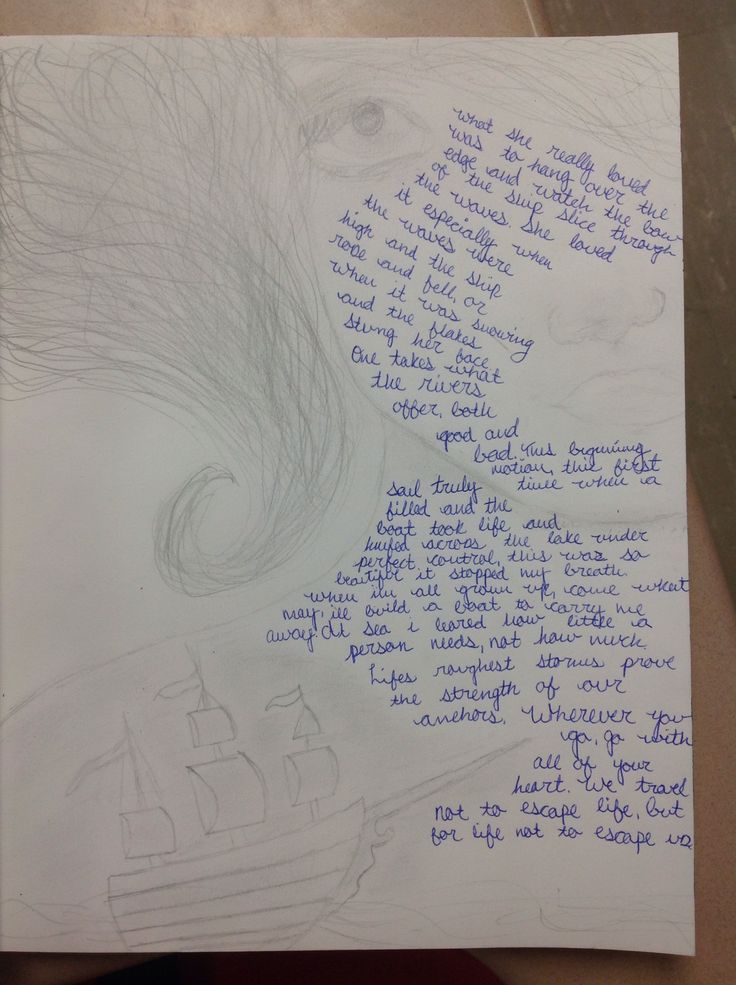 what she really loved
was to hang over the
edge and watch the bow
of the ship slice through
the waves. She loved
it especially when
the waves were
high and the ship
rose and fell, or
when it was snowing
and the flakes
stung her face
One takes what
the rivers
offer, both
good and
bad. This beginning
motion, this first
time when a
sail truly
filled and the
boat took life and
across the lake under
perfect control, this was so
beautiful it stopped my breath.
when im all grown up, come what
may, ill build a boat to carry me
away. At sea i leared how little a
person needs, not how much.
Lifes roughest storms prove
the strength of our
anchors. Wherever you
go, go with
all of your
heart. We travel
not to escape life, but
for life not to escape us